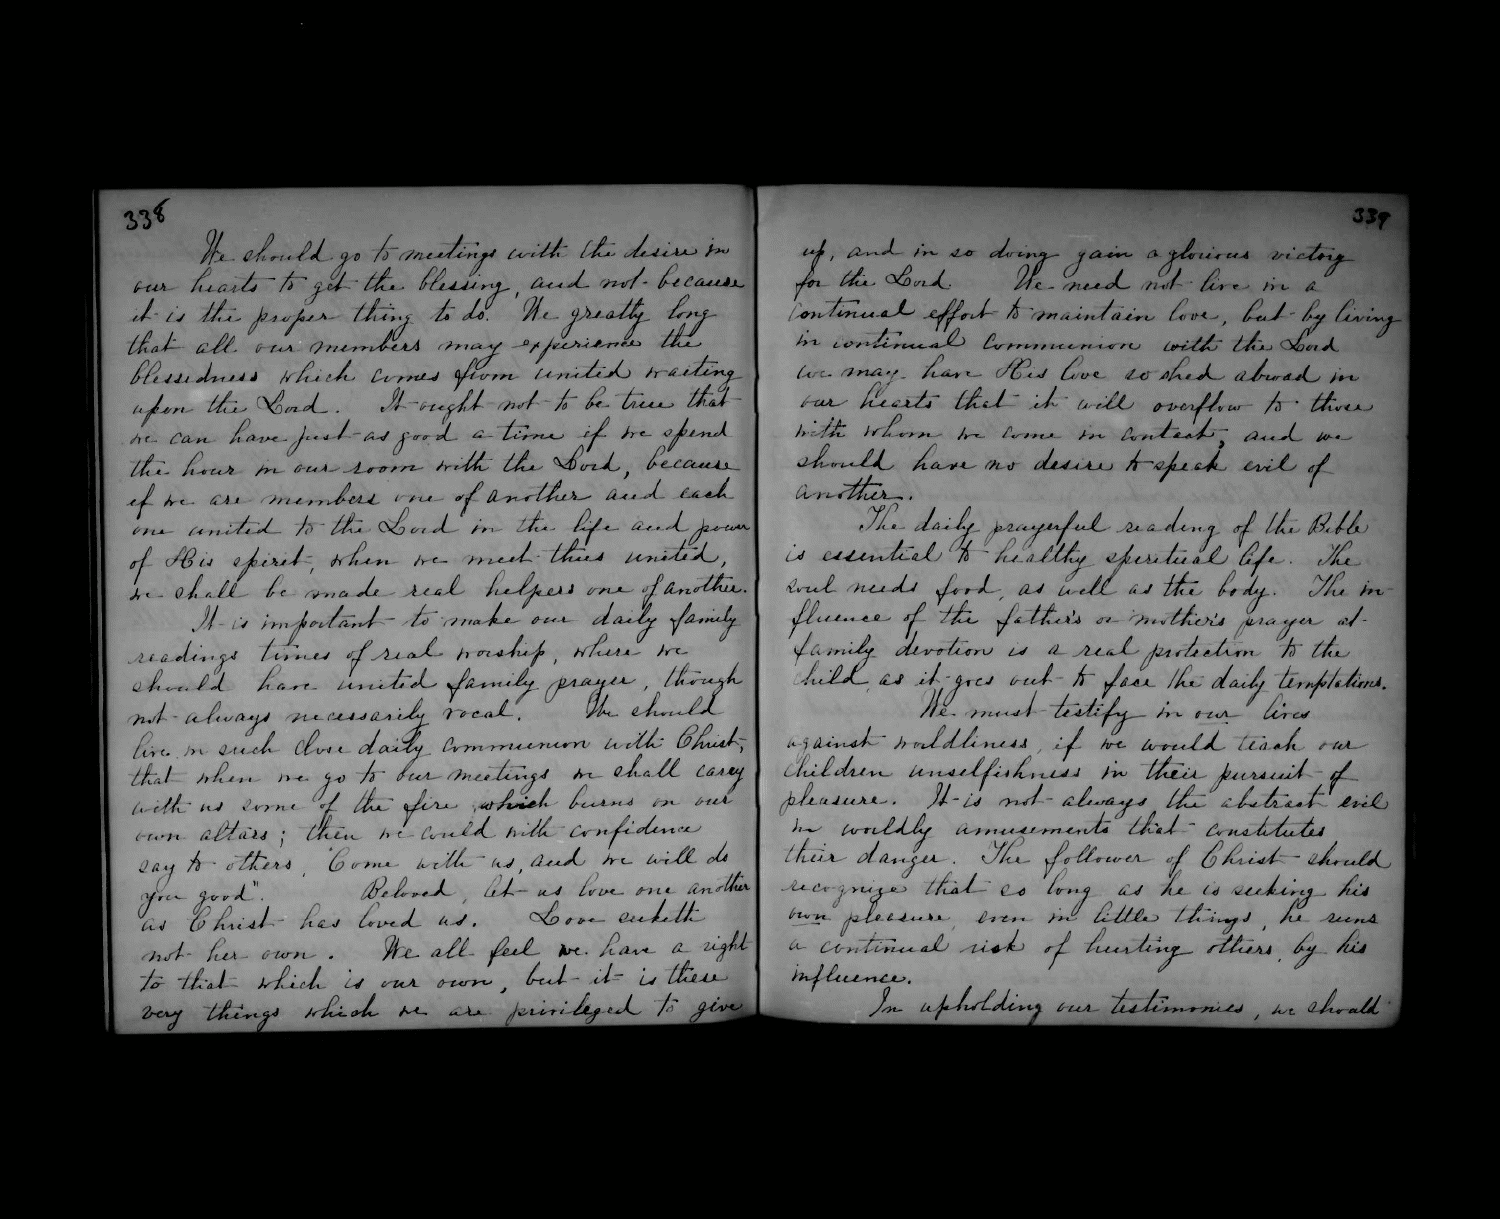 338
We should go to meetings with the desire in
our hearts to get the blessing, and not because
it is the proper thing to do. We greatly long
that all our members may experience the
blessedness which comes from united waiting
upon the Lord. It ought not to be true that
we can have just as good a time if we spend
the hour in our room with the Lord, because
if we are members one of another and each
one united to the Lord in the life and power
of His spirit, when we meet thus united,
we shall be made real helpers one of another.
It is important to make our daily family
readings times of real worship, where we
should have united family prayer, though
not always necessarily vocal. We should
live in such close daily communion with Christ,
that when we go to our meetings we shall carry
with us some of the fire which burns on our
own altars; then we could with confidence
say to others, "Come with us, and we will do
you good". Beloved, let us love one another
as Christ has loved us. Love seeketh
not her own. We all feel we have a right
to that which is our own, but it is these
very things which we are privileged to give
339
up, and in so doing gain a glorious victory
for the Lord. We need not live in a
continual effort to maintain love, but by living
in continual communion with the Lord
we may have His love so shed abroad in
our hearts that it will overflow to those
with whom we come in contact, and we
should have no desire to speak evil of
another.
The daily prayerful reading of the Bible
is essential to healthy spiritual life. The
soul needs food, as well as the body. The in-
fluence of the father's or mother's prayer at
family devotion is a real protection to the
child, as it goes out to face the daily temptations.
We must testify in our lives
against worldliness, if we would teach our
children unselfishness in their pursuit of
pleasure. It is not always the abstract evil
in worldly amusements that constitutes
their danger. The follower of Christ should
recognize that so long as he is seeking his
own pleasure, even in little things, he runs
a continual risk of hurting others, by his
influence.
In upholding our testimonies, we should